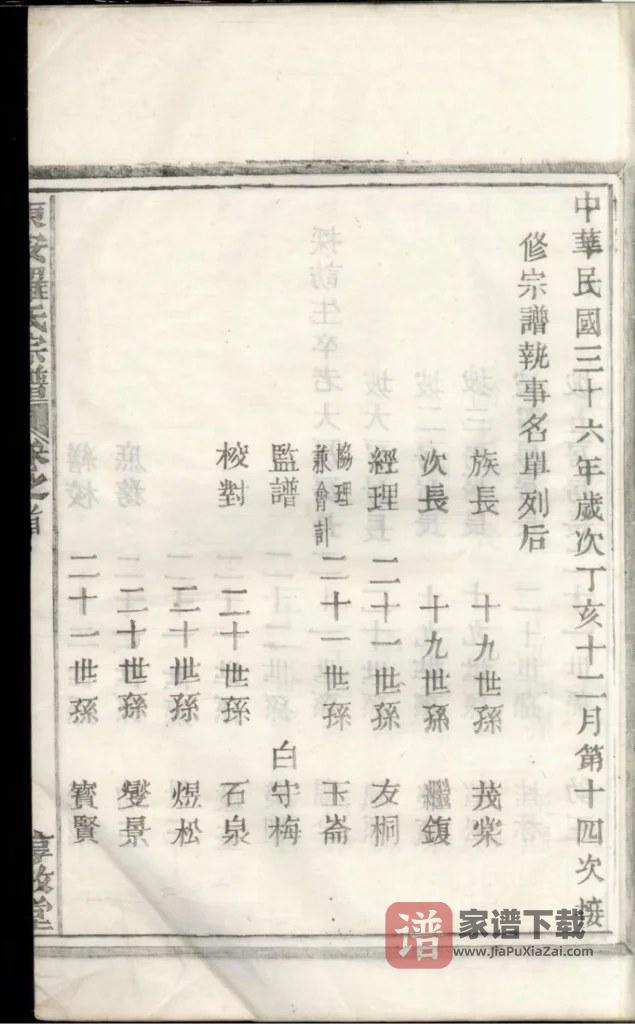 中華民國三十六年歲次丁亥十二月第十四次接
修宗譜執事名單列后
族長 十九世孫 茂棠
次長 十九世孫 繼馥
經理 二十一世孫 友桐
協理兼會計 二十一世孫 玉崙
監譜 白守梅
校對 二十世孫 石泉
二十世孫 煜松
二十世孫 燮景
二十二世孫 寳賢
東安羅氏宗譜 卷之首
敦堂
谱
家谱下载
www.JiaPuXiaZai.com